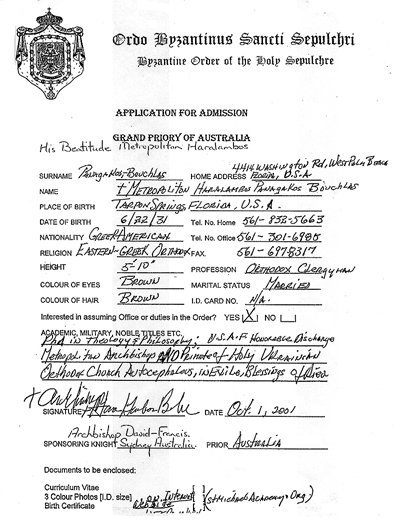 Ordo Byzantinus Sancti Sepulchri
Byzantine Order of the Holy Sepulchre
APPLICATION FOR ADMISSION
GRAND PRIORY OF AUSTRALIA
His Beatitude Metropolitan Haralambos
4414 WASHINGTON Rd, WEST PALM BEACH
SURNAME Panagakos-Bouchlas HOME ADDRESS FLORIDA, U.S.A
NAME + METROPOLITAN HARALAMBOS PANAGAKOS BOUCHLAS
PLACE OF BIRTH TARPON SPRINGS, FLORIDA, U.S.A.
DATE OF BIRTH 6/22/31 Tel. No. Home 561-832-5663
NATIONALITY GREEK AMERICAN Tel. No. Office 561-301-6985
RELIGION EASTERN-GREEK ORTHODOX FAX. 561-697-8317
HEIGHT 5'-10" PROFESSION ORTHODOX CLERGYMAN
COLOUR OF EYES BROWN MARITAL STATUS MARRIED
COLOUR OF HAIR BROWN I.D. CARD NO. N/A.
Interested in assuming Office or duties in the Order? YES X NO
ACADEMIC, MILITARY, NOBLE TITLES ETC.
PhD in Theology & Philosophy; U.S.A.F Honorable Discharge
Metropolitan Archbishop AND Primate of Holy Ukrainian
Orthodox Church Autocephalous, in Exile, Blessings of
+ Archbishop
SIGNATURE DATE Oct. 1, 2001
Archbishop David-Francis.
SPONSORING KNIGHT Sydney Australia PRIOR Australia
Documents to be enclosed:
Curriculum Vitae
3 Colour Photos [I.D. size] Internet (StMichaelsAcademy.Org)
Birth Certificate